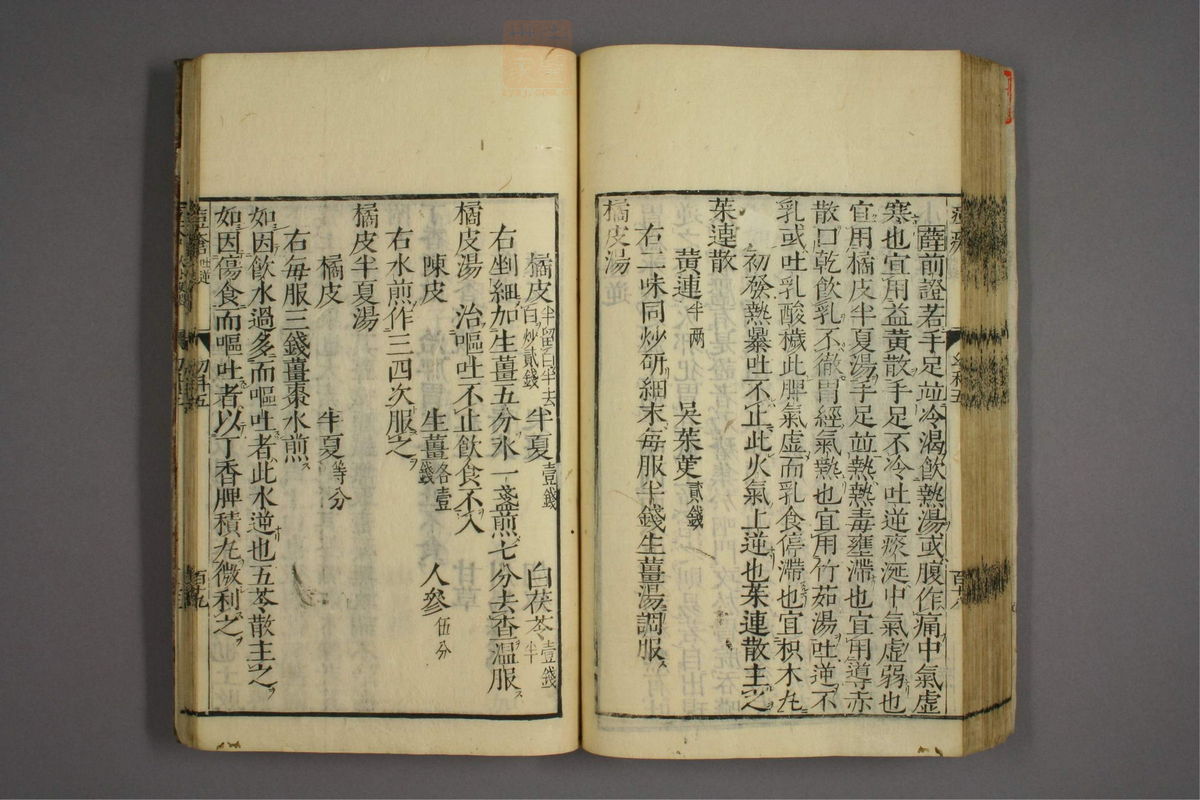 薛前證若手足並冷渴飲熱湯或腹作痛中氣虛
寒也宜用益黃散手足不冷吐逆痰涎中氣虛弱也
宜用橘皮半夏湯手足並熱熱毒壅滯也宜用導赤
散口乾飲乳不徹胃經氣熱也宜用竹茹湯吐逆不
乳或吐乳酸穢此脾氣虛而乳食停滯也宜枳木丸
初發熱暴吐不止此火氣上逆也茱連散主之
茱連散
黃連半兩 吳茱萸貳錢
右二味同炒研細末每服半錢生薑湯調服
橘皮湯
橘皮半留白半去白炒貳錢 半夏壹錢 白茯苓壹錢半
右剉細加生薑五分水一盞煎七分去査溫服
橘皮湯 治嘔吐不止飲食不入
陳皮 生薑各壹錢 人參伍分
右水煎作三四次服之
橘皮半夏湯
橘皮 半夏等分
右每服三錢薑棗水煎
如因飲水過多而嘔吐者此水逆也五苓散主之
如因傷食而嘔吐者以丁香脾積丸微利之